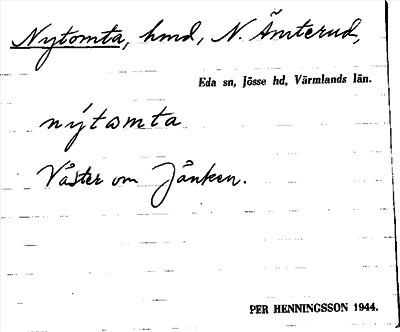 Nytomta, hmd, N. Ämterud,
Eda sn, Jösse hd, Värmlands län.
nýtomta
Väster om Jånken.
PER HENNINGSSON 1944.